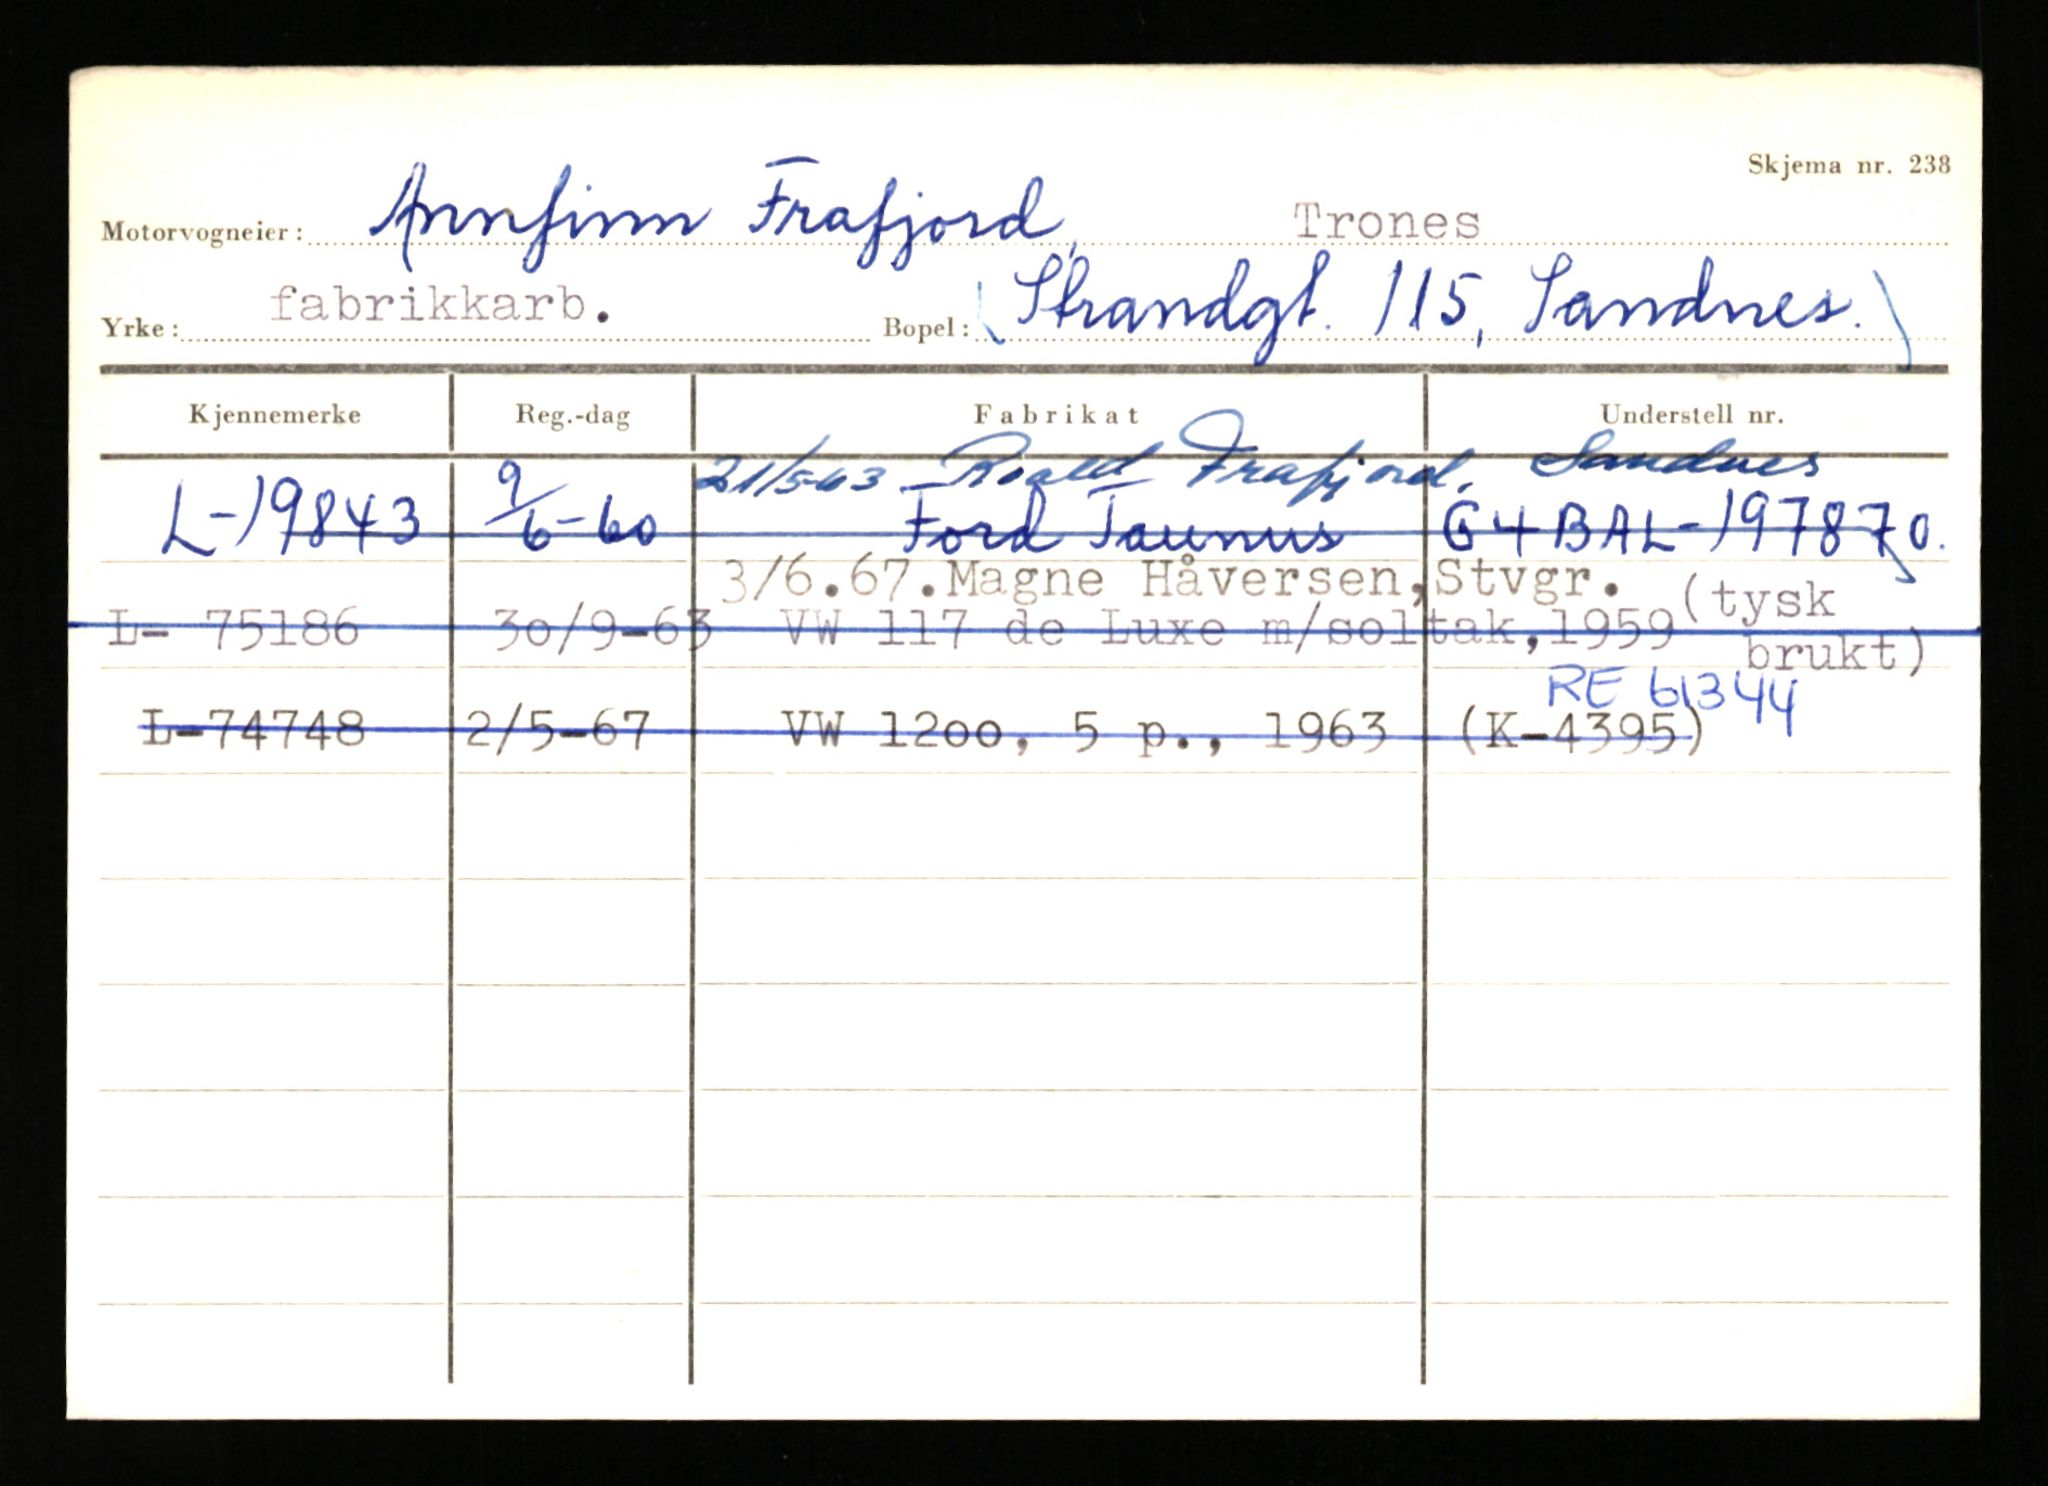 Skjema nr. 238
Motorvogneier: Annfinn Frafjord, Trones
Yrke: fabrikkarb. Bopel: (Strandgt. 115, Sandnes.)
Kjennemerke Reg.-dag Fabrikat Understell nr.
21/5-63 Roald Frafjord, Sandnes
L-19843 9/6-60 Ford Taunus G4BAL-197870.
3/6.67.Magne Håversen,Stvgr.
L- 75186 3o/9-63 VW 117 de Luxe m/soltak,1959 (tysk
brukt)
RE 61344
L-74748 2/5-67 VW 12oo, 5 p., 1963 (K-4395)